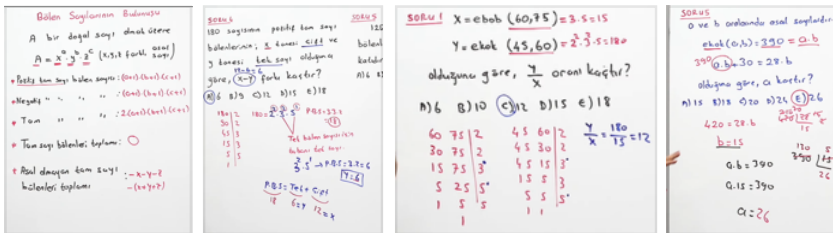 Bölen Sayılarının Bulunuşu
A bir doğal sayı olmak üzere
A = xᵃ.yᵇ.zᶜ (x,y,z farklı asal sayı)
• Pozitif tam sayı bölen sayısı: (a+1).(b+1).(c+1)
• Negatif " " " : (a+1).(b+1).(c+1)
• Tam " " " : 2(a+1).(b+1).(c+1)
• Tam sayı bölenleri toplamı: 0
• Asal olmayan tam sayı bölenleri toplamı : -x-y-z
-(x+y+z)
SORU 4
180 sayısının pozitif tam sayı
bölenlerinin; x tanesi çift ve
y tanesi tek sayı olduğuna
12-6=6
göre, (x-y) farkı kaçtır?
A)6 B)9 C)12 D)15 E)18
180 2
90 2
45 3
15 3
5 5
1
180=2².3².5¹ P.B.S=3.3.2
=18
Tek bölen sayısı için
3².5¹ → P.B.S=3.2=6
Y=6
P.B.S = Tek + Çift
18 6=y 12=x
SORU 5
SORU 1 X=ebob (60,75) = 3.5=15
Y=ekok (45,60) = 2².3².5=180
olduğuna göre, Y/X oranı kaçtır?
A)6 B)10 C)12 D)15 E)18
60 75 2
30 75 2
15 75 3*
5 25 5*
1 5 5
1
45 60 2
45 30 2
45 15 3*
15 5 3
5 5 5*
1 1
Y/X = 180/15 = 12
SORU 5
a ve b aralarında asal sayılardır.
ekok(a,b)=390 = a.b
390 a.b+30=28.b
olduğuna göre, a kaçtır?
A)15 B)18 C)20 D)24 E)26
420=28.b
b=15
a.b=390
a.15=390
a=26